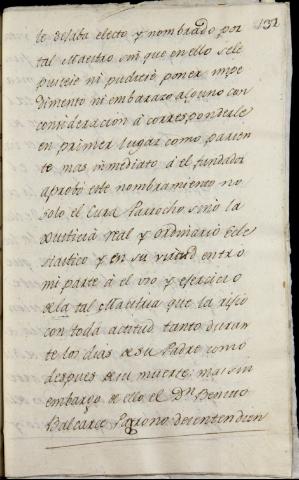 132
te estaba electo y nombrado por
tal Maestro sin que en ello se le
pusiese ni pudiese poner impe
dimento ni embarazo alguno con
consideración á corresponderle
en primer lugar como parien
te mas inmediato á el fundador
aprobó este nombramiento no
solo el Cura Parrocho, sino la
Justicia real y ordinario Ecle
siastico y en su virtud entro
mi parte á el uso y exercicio
de la tal Maestria que la rijio
con toda actitud tanto duran
te los dias de su Padre como
despues de su muerte; mas sin
embargo de ello el Dn Benito
Balcarce desentendien